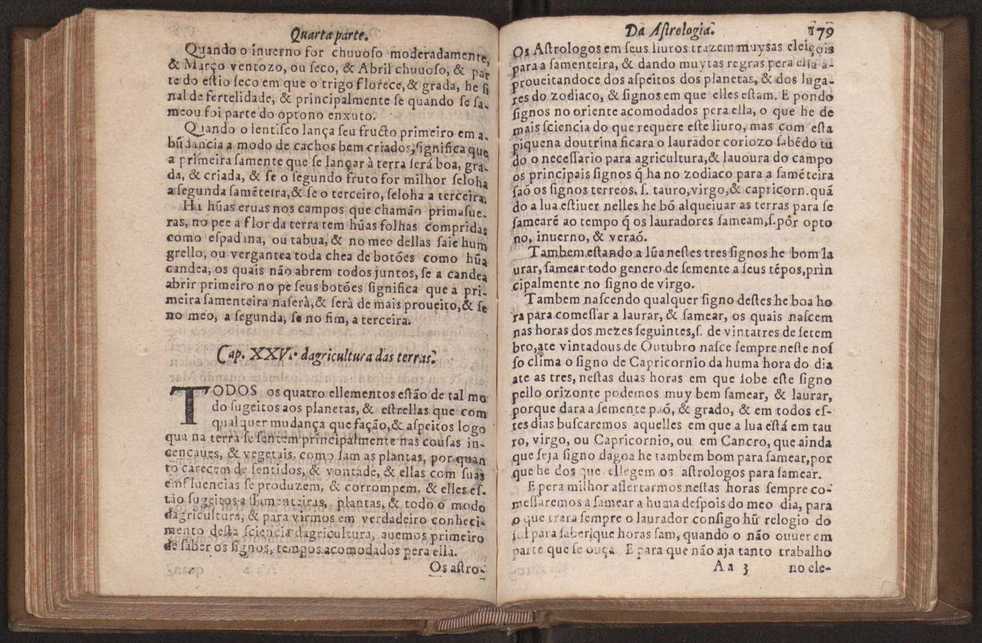 Quarta parte.
Quando o inuerno for chuuoso moderadamente,
& Março ventozo, ou seco, & Abril chuuoso, & par
te do estio seco em que o trigo florece, & grada, he si
nal de fertelidade, & principalmente se quando se sa-
meou foi parte do optono enxuto.
Quando o lentisco lança seu fructo primeiro em a-
bũdancia a modo de cachos bem criados, significa que
a primeira samente que se lançar à terra será boa, gra-
da, & criada, & se o segundo fruto for milhor seloha
a segunda samẽteira, & se o terceiro, seloha a terceira.
Ha hũas eruas nos campos que chamão primasue-
ras, no pee a flor da terra tem hũas folhas compridas
como espadana, ou tabua, & no meo dellas saie hum
grello, ou vergantea toda chea de botões como hũa
candea, os quais não abrem todos juntos, se a candea
abrir primeiro no pe seus botões significa que a pri-
meira samenteira naserà, & serà de mais proueito, & se
no meo, a segunda, se no fim, a terceira.
Cap. XXV. dagricultura das terras.
TODOS os quatro ellementos estão de tal mo
do sugeitos aos planetas, & estrellas que com
qualquer mudança que fação, & aspeitos logo
qua na terra se sentem principalmente nas cousas in-
cençaues, & vegetais, como sam as plantas, por quan
to carecem de sentidos, & vontade, & ellas com suas
influencias se produzem, & corrompem, & elles es-
tão sugeitos a samenteiras, plantas, & todo o modo
dagricultura, & para virmos em verdadeiro conheci-
mento desta sciencia dagricultura, auemos primeiro
de saber os signos, tempos acomodados pera ella.
Os astro-
Da Astrologia. 179
Os Astrologos em seus liuros trazem muysas eleições
para a samenteira, & dando muytas regras pera ella a-
proueitandoce dos aspeitos dos planetas, & dos luga-
res do zodiaco, & signos em que elles estam. E pondo
signos no oriente acomodados pera ella, o que he de
mais sciencia do que requere este liuro, mas com esta
piquena doutrina ficara o laurador coriozo sabẽdo tu
do o necessario para agricultura, & lauoura do campo
os principais signos q̃ ha no zodiaco para a samẽteira
saõ os signos terreos. s. tauro, virgo, & capricorn. quã
do a lua estiuer nelles he bõ alqueiuar as terras para se
samearẽ ao tempo q̃ os lauradores sameam, s. por opto
no, inuerno, & veraõ.
Tambem estando a lũa nestes tres signos he bom la
urar, samear todo genero de semente a seus tẽpos, prin
cipalmente no signo de virgo.
Tambem nascendo qualquer signo destes he boa ho
ra para comessar a laurar, & samear, os quais nascem
nas horas dos mezes seguintes, s. de vintatres de setem
bro, ate vintadous de Outubro nasce sempre neste nos
so clima o signo de Capricornio da huma hora do dia
ate as tres, nestas duas horas em que sobe este signo
pello orizonte podemos muy bem samear, & laurar,
porque dara a semente paõ, & grado, & em todos es-
tes dias buscaremos aquelles em que a lua está em tau
ro, virgo, ou Capricornio, ou em Cancro, que ainda
que seja signo dagoa he tambem bom para samear, por
que he dos que ellegem os astrologos para samear.
E pera milhor assertarmos nestas horas sempre co-
messaremos a samear a huma despois do meo dia, para
o que trara sempre o laurador consigo hũ relogio do
sol para saber que horas sam, quando o não ouuer em
parte que se ouça. E para que não aja tanto trabalho
A a 3 no ele-